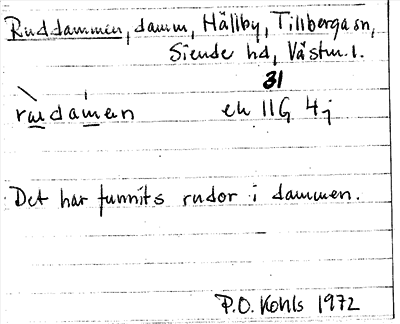 Ruddammen, damm, Hällby, Tillberga sn,
Siende hd, Västm. l.
31
ek 11G 4j
Det har funnits rudor i dammen.
P.O. Kohls 1972